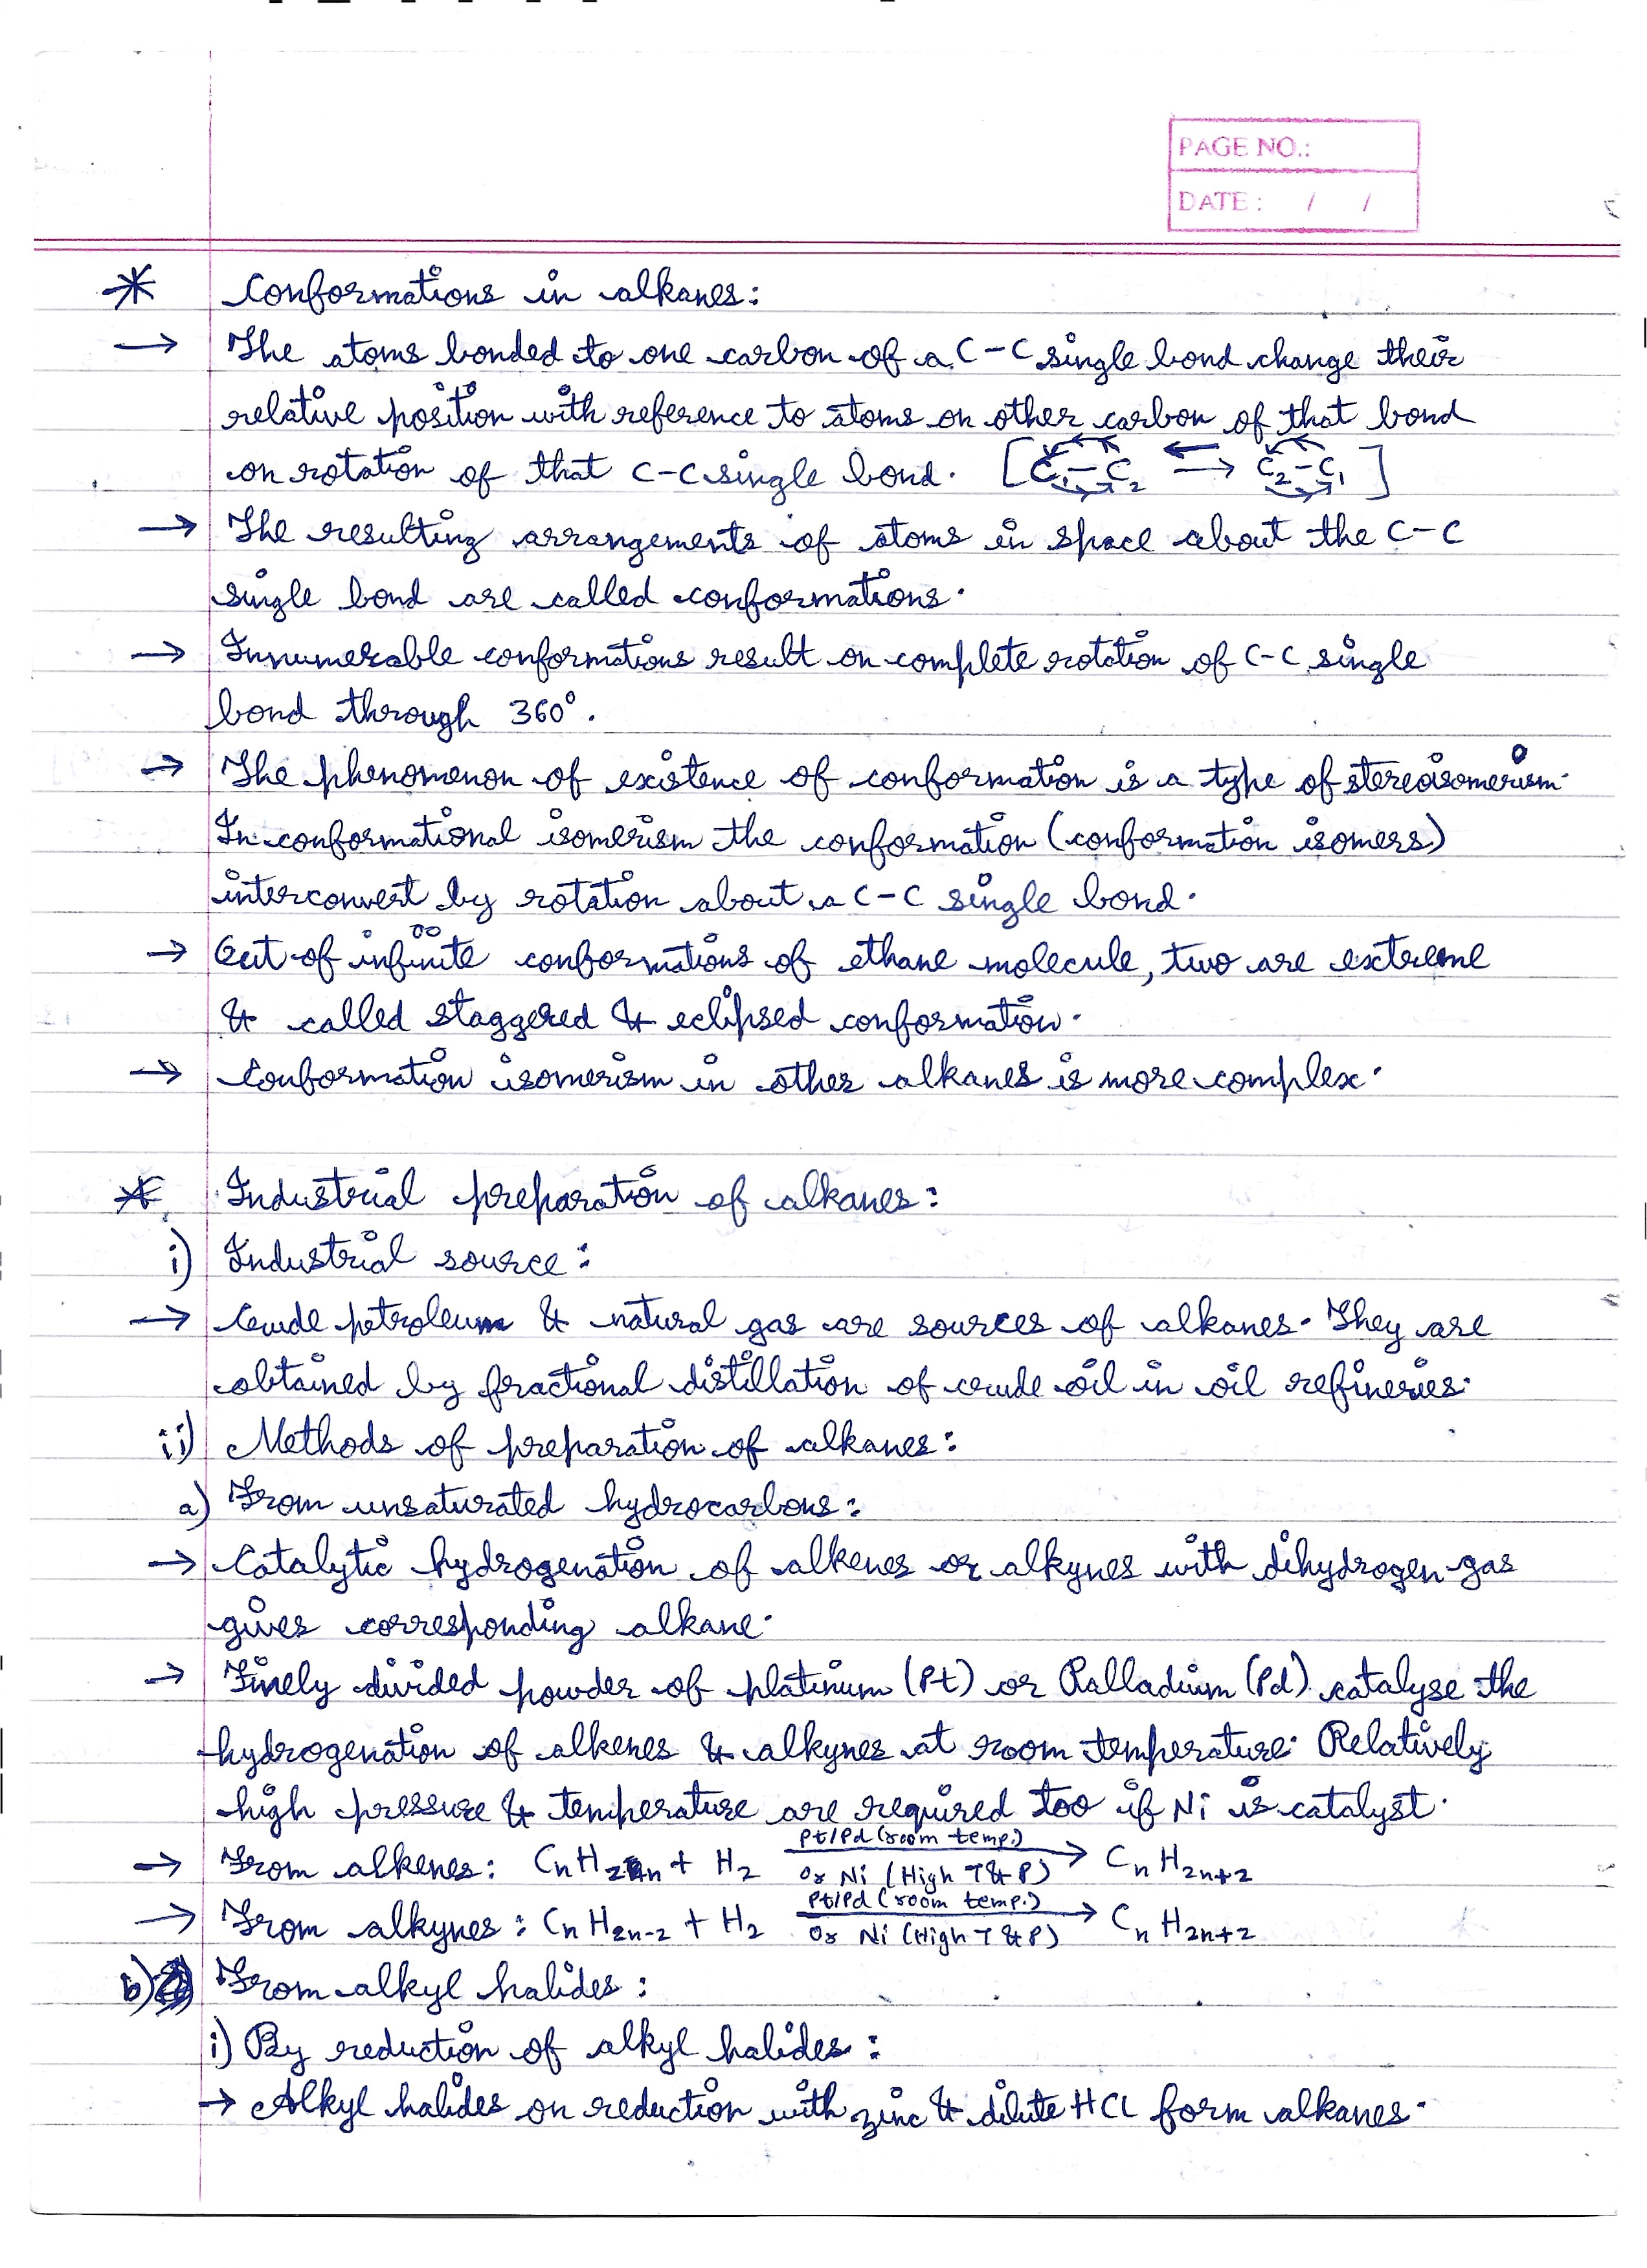 PAGE NO.:
DATE : / /
* Conformations in alkanes:
→ The atoms bonded to one carbon of a C-C single bond change their
relative position with reference to atoms on other carbon of that bond
on rotation of that C-C single bond. [C₁-C₂ ⇄ C₂-C₁]
→ The resulting arrangements of atoms in space about the C-C
single bond are called conformations.
→ Innumerable conformations result on complete rotation of C-C single
bond through 360°.
→ The phenomenon of existence of conformation is a type of stereoisomerism.
In conformational isomerism the conformation (conformation isomers)
interconvert by rotation about a C-C single bond.
→ Out of infinite conformations of ethane molecule, two are extreme
& called staggered & eclipsed conformation.
→ Conformation isomerism in other alkanes is more complex.
* Industrial preparation of alkanes:
i) Industrial source:
→ Crude petroleum & natural gas are sources of alkanes. They are
obtained by fractional distillation of crude oil in oil refineries.
ii) Methods of preparation of alkanes:
a) From unsaturated hydrocarbons:
→ Catalytic hydrogenation of alkenes or alkynes with dihydrogen gas
gives corresponding alkane.
→ Finely divided powder of platinum (Pt) or Palladium (Pd) catalyse the
hydrogenation of alkenes & alkynes at room temperature. Relatively
high pressure & temperature are required too if Ni is catalyst.
→ From alkenes: CnH2n + H2 Pt/Pd (room temp.) → Or Ni (High T & P) CnH2n+2
→ From alkynes: CnH2n-2 + H2 Pt/Pd (room temp.) → Or Ni (High T & P) CnH2n+2
b) From alkyl halides:
i) By reduction of alkyl halides:
→ Alkyl halides on reduction with zinc & dilute HCl form alkanes.